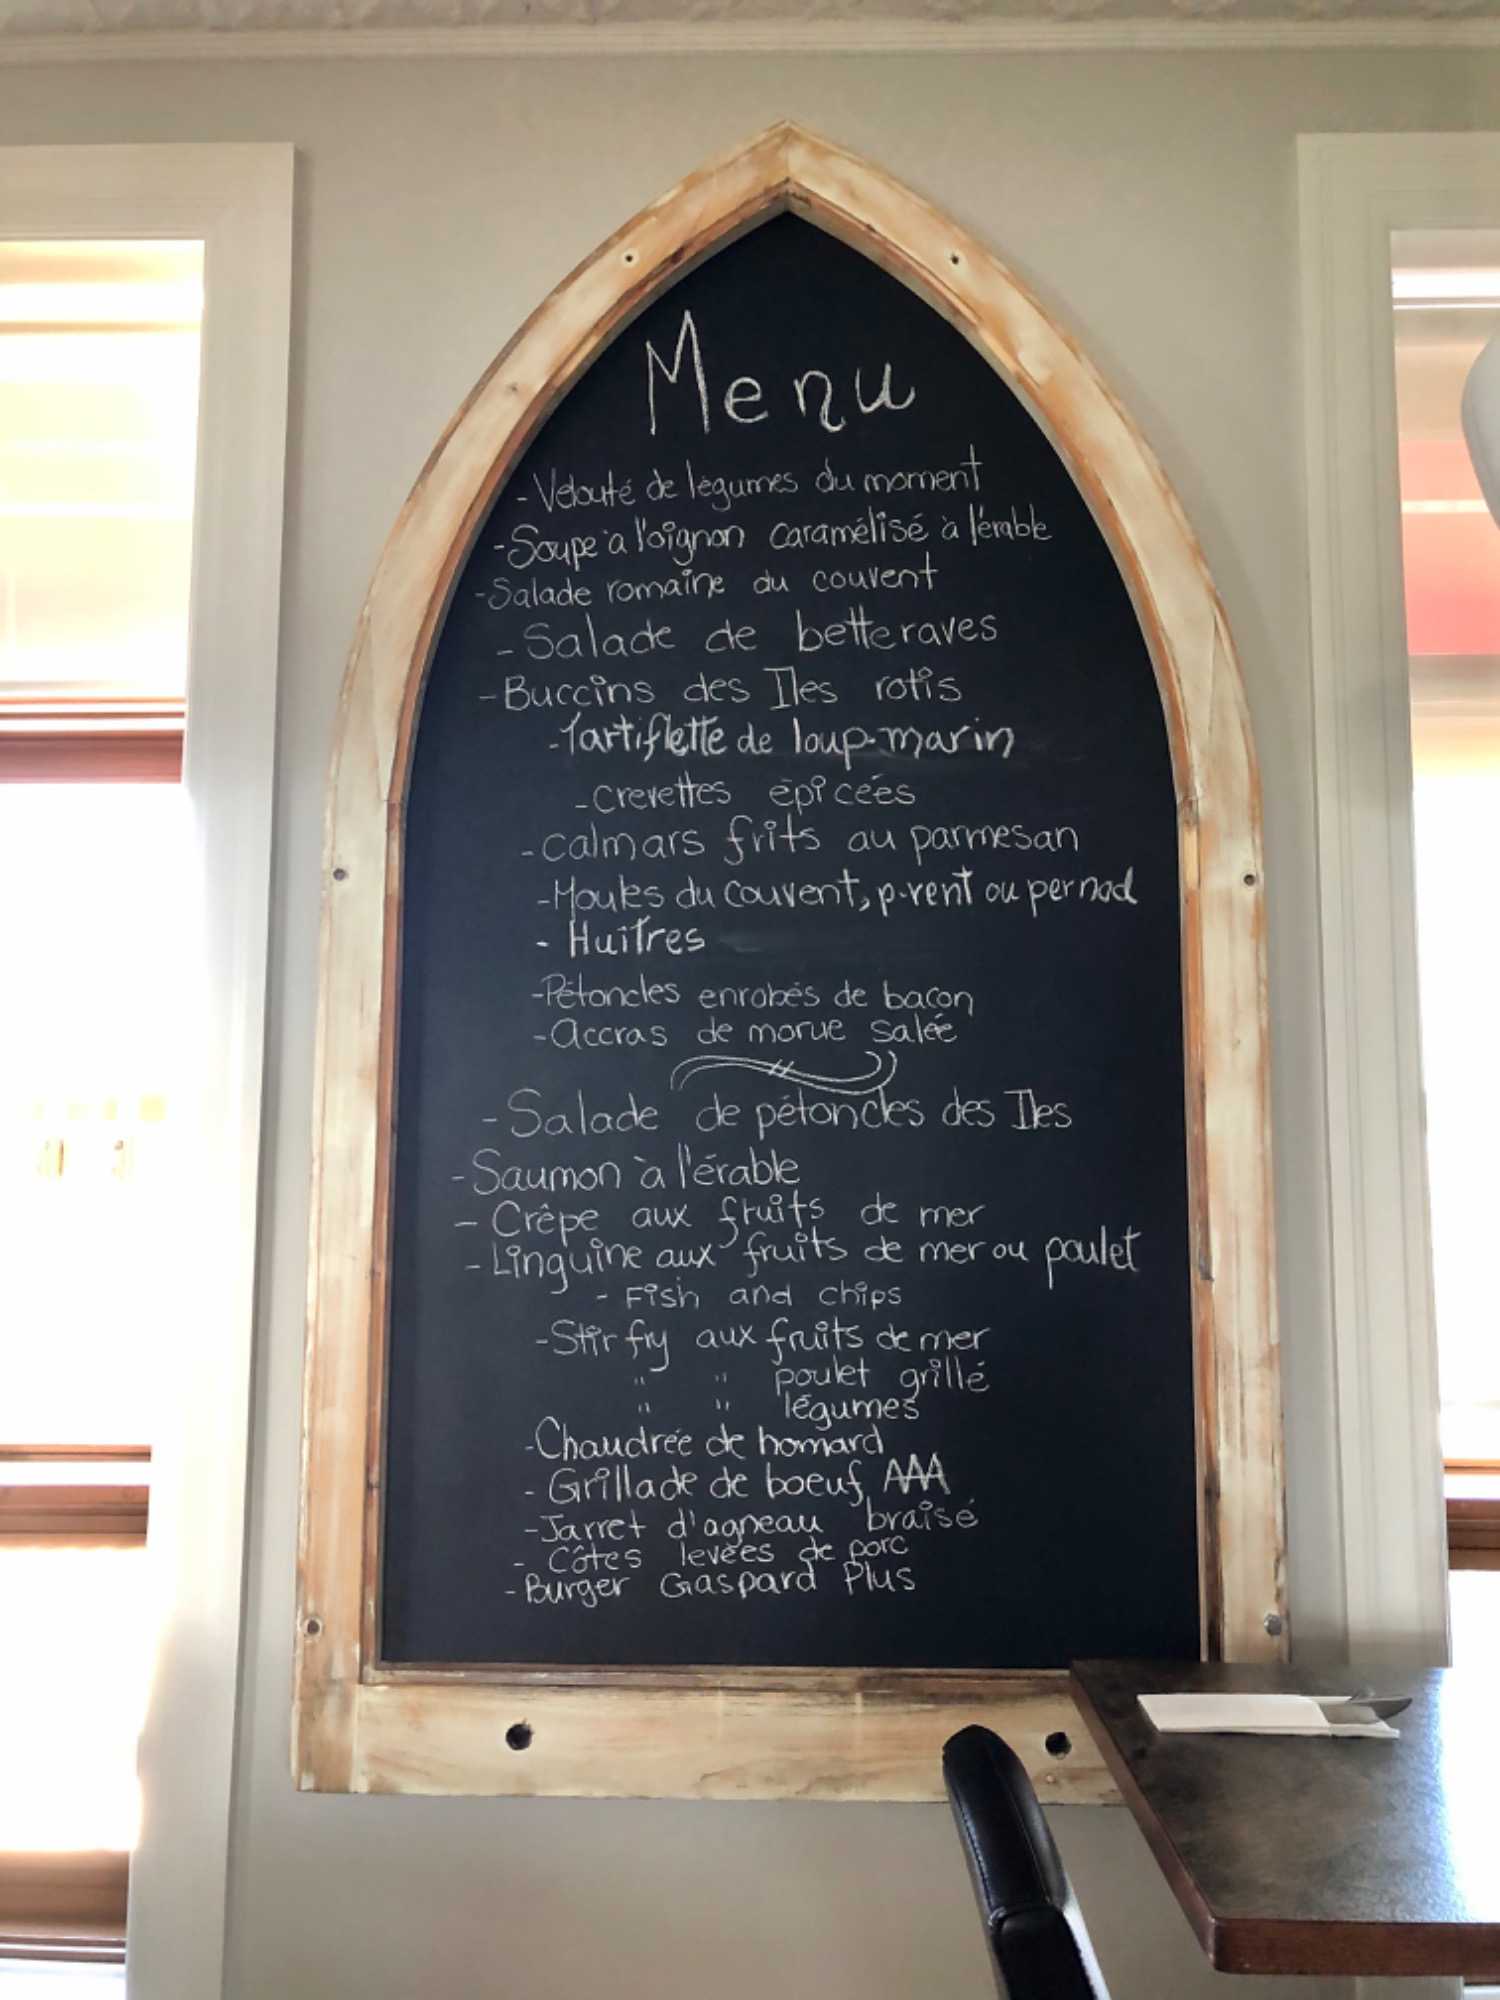 Menu
- Velouté de légumes du moment
- Soupe à l'oignon caramélisé à l'érable
- Salade romaine du couvent
- Salade de betteraves
- Buccins des Iles rotis
- Tartiflette de loup-marin
- crevettes épicées
- calmars frits au parmesan
- Moules du couvent, p-vent ou pernod
- Huîtres
- Pétoncles enrobés de bacon
- Accras de morue salée
- Salade de pétoncles des Iles
- Saumon à l'érable
- Crêpe aux fruits de mer
- Linguine aux fruits de mer ou poulet
- Fish and chips
- Stir fry aux fruits de mer
" " poulet grillé
" " légumes
- Chaudrée de homard
- Grillade de boeuf AAA
- Jarret d'agneau braisé
- Côtes levées de porc
- Burger Gaspard Plus